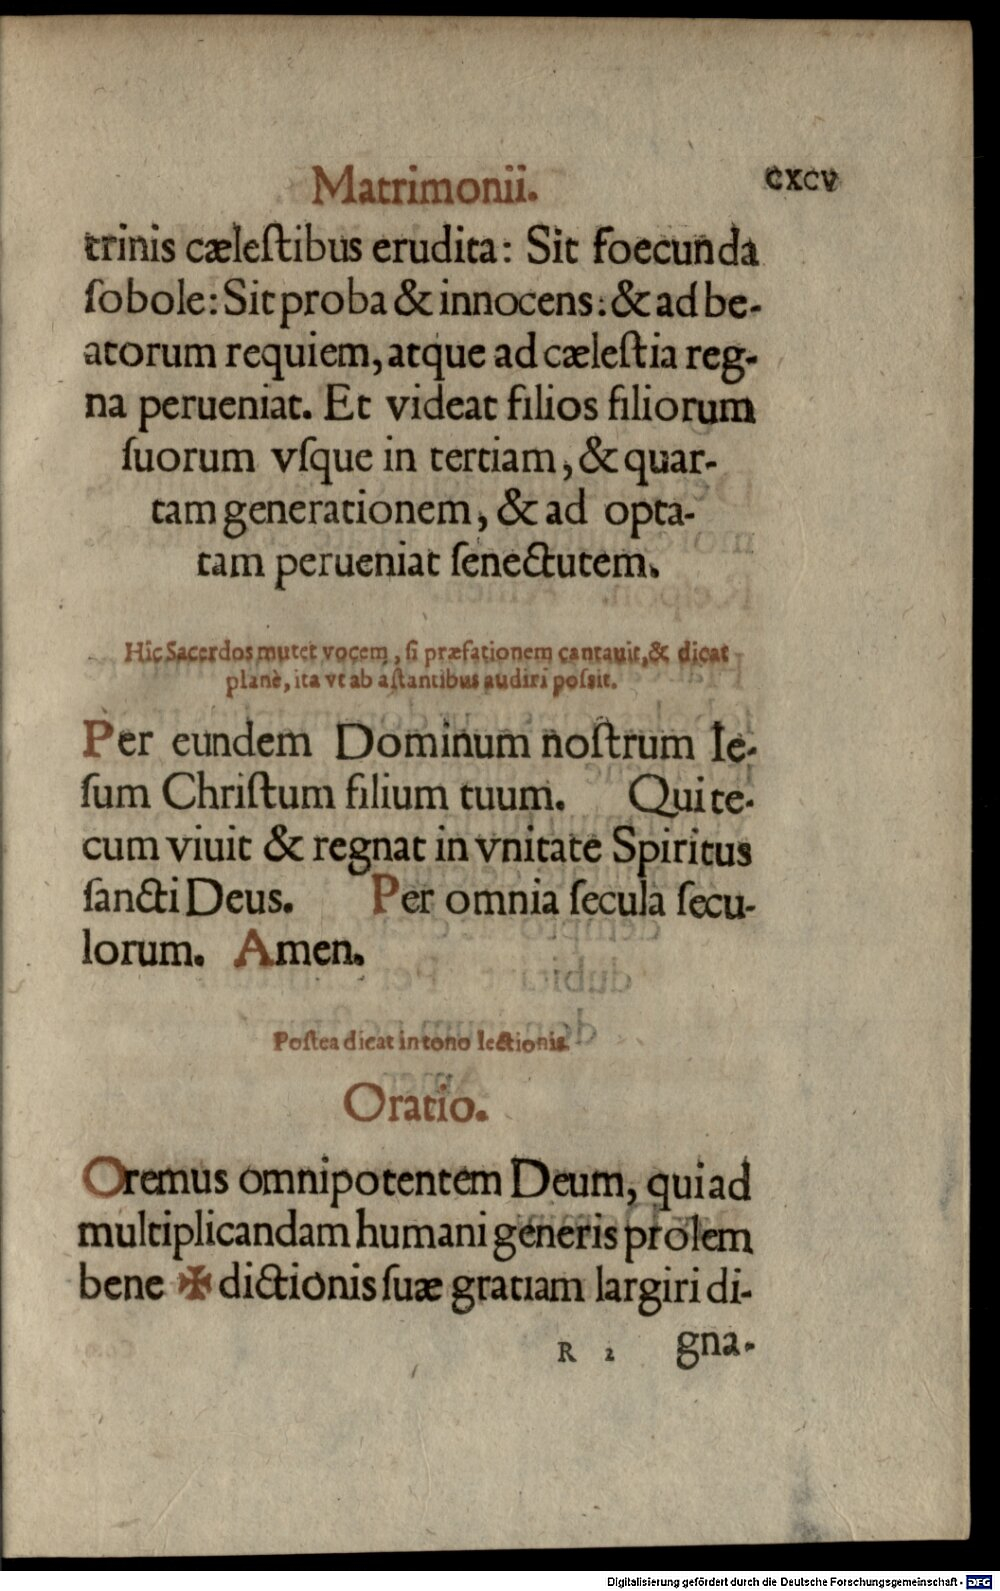 Matrimonii. CXCV
trinis cæleſtibus erudita: Sit foecunda
ſobole: Sit proba & innocens: & ad be-
atorum requiem, atque ad cæleſtia reg-
na perueniat. Et videat filios filiorum
ſuorum vſque in tertiam, & quar-
tam generationem, & ad opta-
tam perueniat ſenectutem.
Hîc Sacerdos mutet vocem, ſi præfationem cantauit, & dicat
planè, ita vt ab aſtantibus audiri poſsit.
Per eundem Dominum noſtrum Ie-
ſum Chriſtum filium tuum. Qui te-
cum viuit & regnat in vnitate Spiritus
ſancti Deus. Per omnia ſecula ſecu-
lorum. Amen.
Poſtea dicat in tono lectionis.
Oratio.
Oremus omnipotentem Deum, qui ad
multiplicandam humani generis prolem
bene ✠ dictionis ſuæ gratiam largiri di-
R 2 gna-
Digitalisierung gefördert durch die Deutsche Forschungsgemeinschaft - DFG